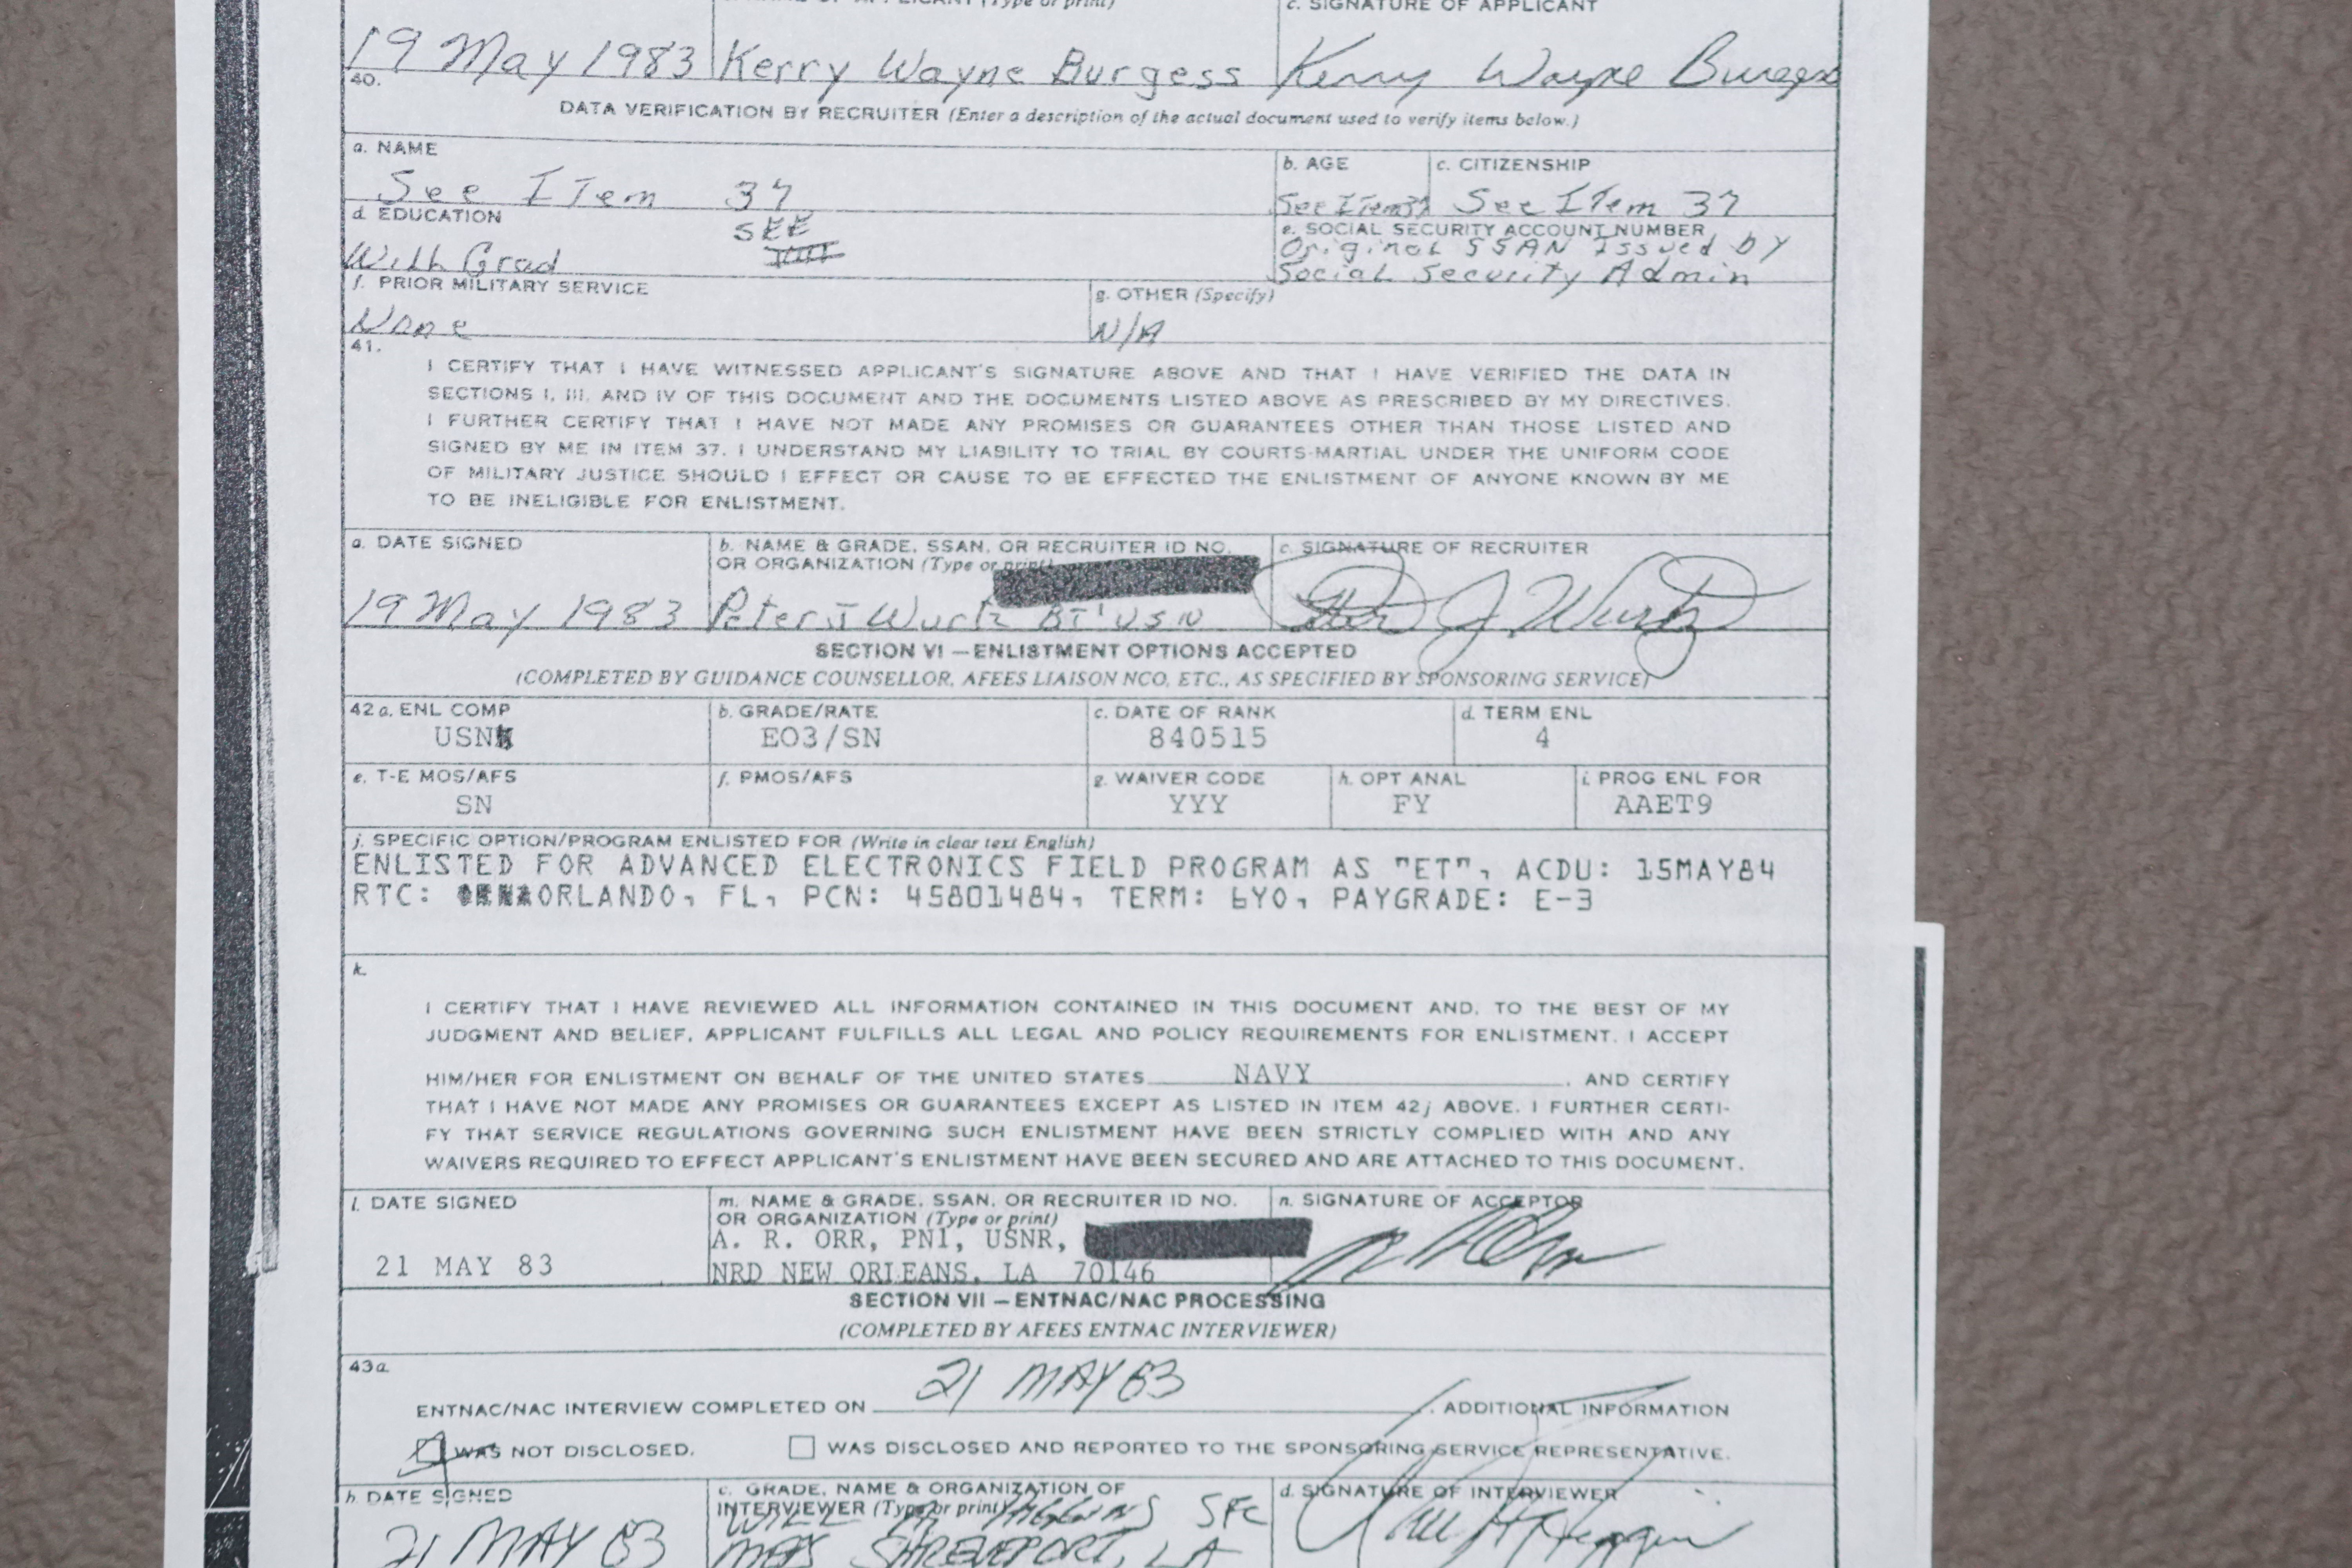 c. SIGNATURE OF APPLICANT
19 May 1983 Kerry Wayne Burgess Kerry Wayne Burgess
40.
DATA VERIFICATION BY RECRUITER (Enter a description of the actual document used to verify items below.)
a. NAME
See ITem 37
b. AGE
See Item 37
c. CITIZENSHIP
See ITem 37
d. EDUCATION
Will Grad
SEE
e. SOCIAL SECURITY ACCOUNT NUMBER
Original SSAN Issued by
Social Security Admin
f. PRIOR MILITARY SERVICE
None
g. OTHER (Specify)
N/A
41.
I CERTIFY THAT I HAVE WITNESSED APPLICANT'S SIGNATURE ABOVE AND THAT I HAVE VERIFIED THE DATA IN
SECTIONS I, III, AND IV OF THIS DOCUMENT AND THE DOCUMENTS LISTED ABOVE AS PRESCRIBED BY MY DIRECTIVES.
I FURTHER CERTIFY THAT I HAVE NOT MADE ANY PROMISES OR GUARANTEES OTHER THAN THOSE LISTED AND
SIGNED BY ME IN ITEM 37. I UNDERSTAND MY LIABILITY TO TRIAL BY COURTS-MARTIAL UNDER THE UNIFORM CODE
OF MILITARY JUSTICE SHOULD I EFFECT OR CAUSE TO BE EFFECTED THE ENLISTMENT OF ANYONE KNOWN BY ME
TO BE INELIGIBLE FOR ENLISTMENT.
a. DATE SIGNED
19 May 1983
b. NAME & GRADE, SSAN, OR RECRUITER ID NO.
OR ORGANIZATION (Type or print)
Peter J Wurtz BT1 USN
c. SIGNATURE OF RECRUITER
Peter J. Wurtz
SECTION VI — ENLISTMENT OPTIONS ACCEPTED
(COMPLETED BY GUIDANCE COUNSELLOR, AFEES LIAISON NCO, ETC., AS SPECIFIED BY SPONSORING SERVICE)
42 a. ENL COMP
USN
b. GRADE/RATE
EO3/SN
c. DATE OF RANK
840515
d. TERM ENL
4
e. T-E MOS/AFS
SN
f. PMOS/AFS
g. WAIVER CODE
YYY
h. OPT ANAL
FY
i. PROG ENL FOR
AAET9
j. SPECIFIC OPTION/PROGRAM ENLISTED FOR (Write in clear text English)
ENLISTED FOR ADVANCED ELECTRONICS FIELD PROGRAM AS "ET", ACDU: 15MAY84
RTC: ORLANDO, FL, PCN: 45801484, TERM: 6YO, PAYGRADE: E-3
k.
I CERTIFY THAT I HAVE REVIEWED ALL INFORMATION CONTAINED IN THIS DOCUMENT AND, TO THE BEST OF MY
JUDGMENT AND BELIEF, APPLICANT FULFILLS ALL LEGAL AND POLICY REQUIREMENTS FOR ENLISTMENT. I ACCEPT
HIM/HER FOR ENLISTMENT ON BEHALF OF THE UNITED STATES NAVY , AND CERTIFY
THAT I HAVE NOT MADE ANY PROMISES OR GUARANTEES EXCEPT AS LISTED IN ITEM 42j ABOVE. I FURTHER CERTI-
FY THAT SERVICE REGULATIONS GOVERNING SUCH ENLISTMENT HAVE BEEN STRICTLY COMPLIED WITH AND ANY
WAIVERS REQUIRED TO EFFECT APPLICANT'S ENLISTMENT HAVE BEEN SECURED AND ARE ATTACHED TO THIS DOCUMENT.
l. DATE SIGNED
21 MAY 83
m. NAME & GRADE, SSAN, OR RECRUITER ID NO.
OR ORGANIZATION (Type or print)
A. R. ORR, PN1, USNR,
NRD NEW ORLEANS, LA 70146
n. SIGNATURE OF ACCEPTOR
SECTION VII — ENTNAC/NAC PROCESSING
(COMPLETED BY AFEES ENTNAC INTERVIEWER)
43a.
ENTNAC/NAC INTERVIEW COMPLETED ON 21 MAY 83 . ADDITIONAL INFORMATION
WAS NOT DISCLOSED. WAS DISCLOSED AND REPORTED TO THE SPONSORING SERVICE REPRESENTATIVE.
b. DATE SIGNED
21 MAY 83
c. GRADE, NAME & ORGANIZATION OF
INTERVIEWER (Type or print)
SFC
MEPS SHREVEPORT, LA
d. SIGNATURE OF INTERVIEWER